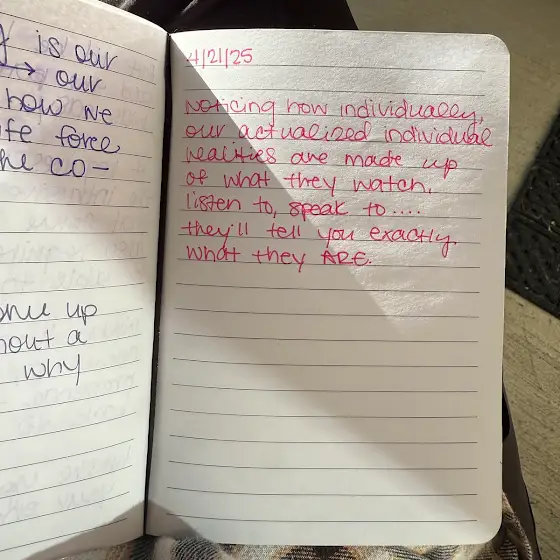 is our
→ our
how we
life force
the co-
up
about a
why
4/21/25
noticing how individually,
our actualized individual
realities are made up
of what they watch,
listen to, speak to....
they'll tell you exactly
what they ARE.